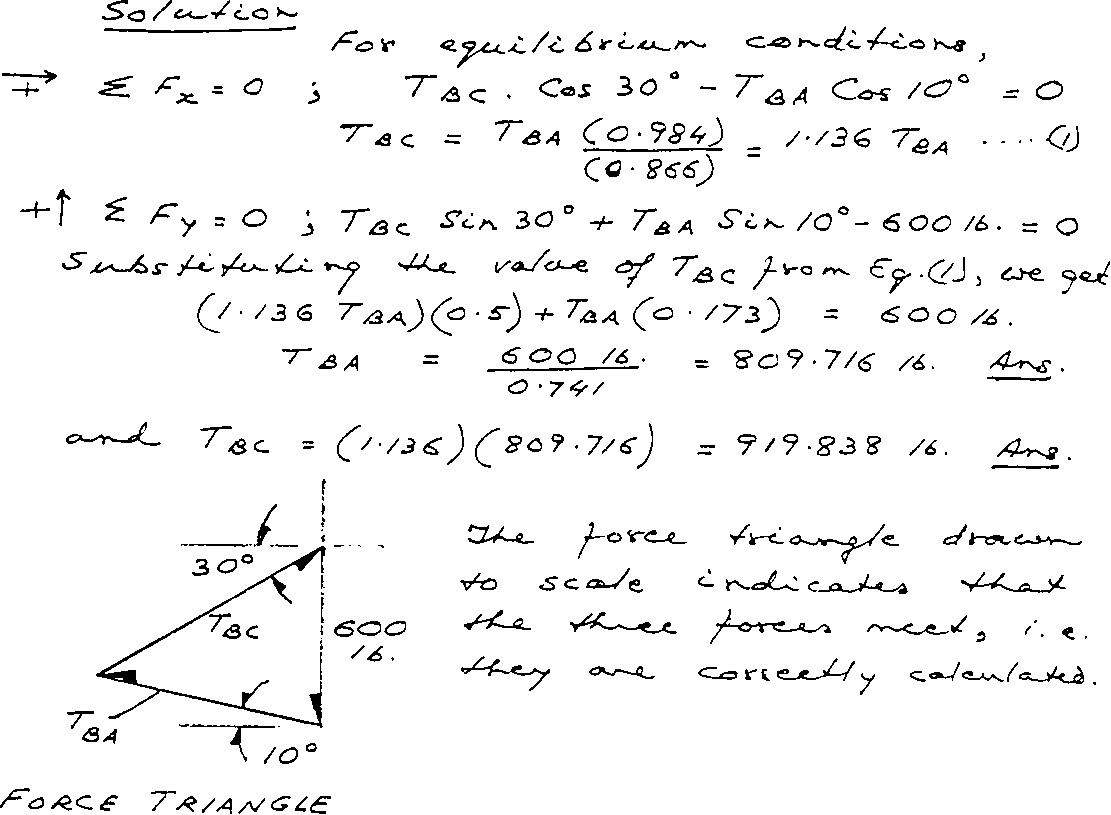 Solution
For equilibrium conditions,
→+ Σ Fx = 0 ; TBC . Cos 30° - TBA Cos 10° = 0
TBC = TBA (0.984)/(0.866) = 1.136 TBA ....(1)
+↑ Σ Fy = 0 ; TBC Sin 30° + TBA Sin 10° - 600 lb. = 0
Substituting the value of TBC from Eq.(1), we get
(1.136 TBA)(0.5) + TBA (0.173) = 600 lb.
TBA = 600 lb./0.741 = 809.716 lb. Ans.
and TBC = (1.136)(809.716) = 919.838 lb. Ans.
30°
TBC
600
lb.
TBA
10°
FORCE TRIANGLE
The force triangle drawn
to scale indicates that
the three forces meet, i.e.
they are correctly calculated.